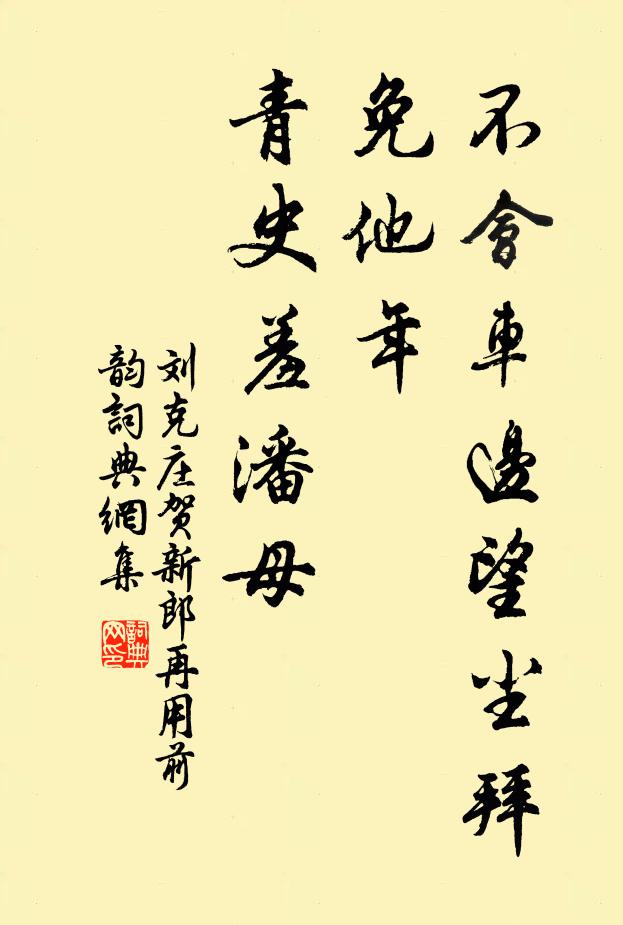 不會車邊望尘拜
免他年
青史羞潘母
刘克庄贺新郎再用前
韵詞典網集
詞典
网印